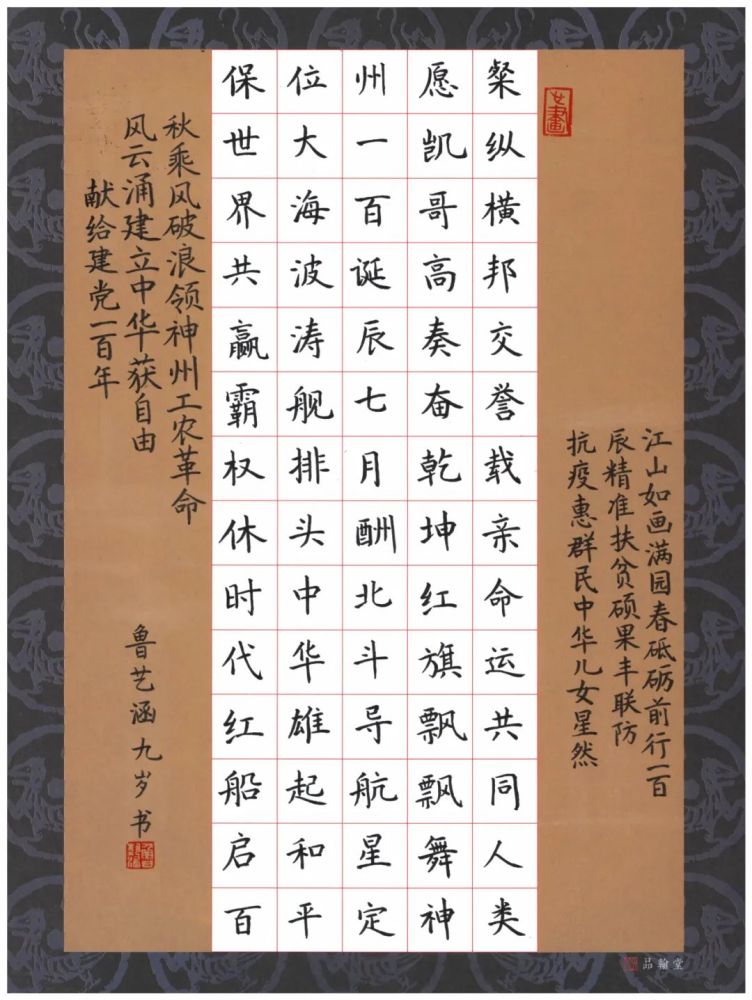 江山如画满园春砥砺前行一百
辰精准扶贫硕果丰联防
抗疫惠群民中华儿女星然
粲纵横邦交誉载亲命运共同人类
愿凯哥高奏奋乾坤红旗飘飘舞神
州一百诞辰七月酬北斗导航星定
位大海波涛舰排头中华雄起和平
保世界共赢霸权休时代红船启百
秋乘风破浪领神州工农革命
风云涌建立中华获自由
献给建党一百年
鲁艺涵九岁书
品翰堂